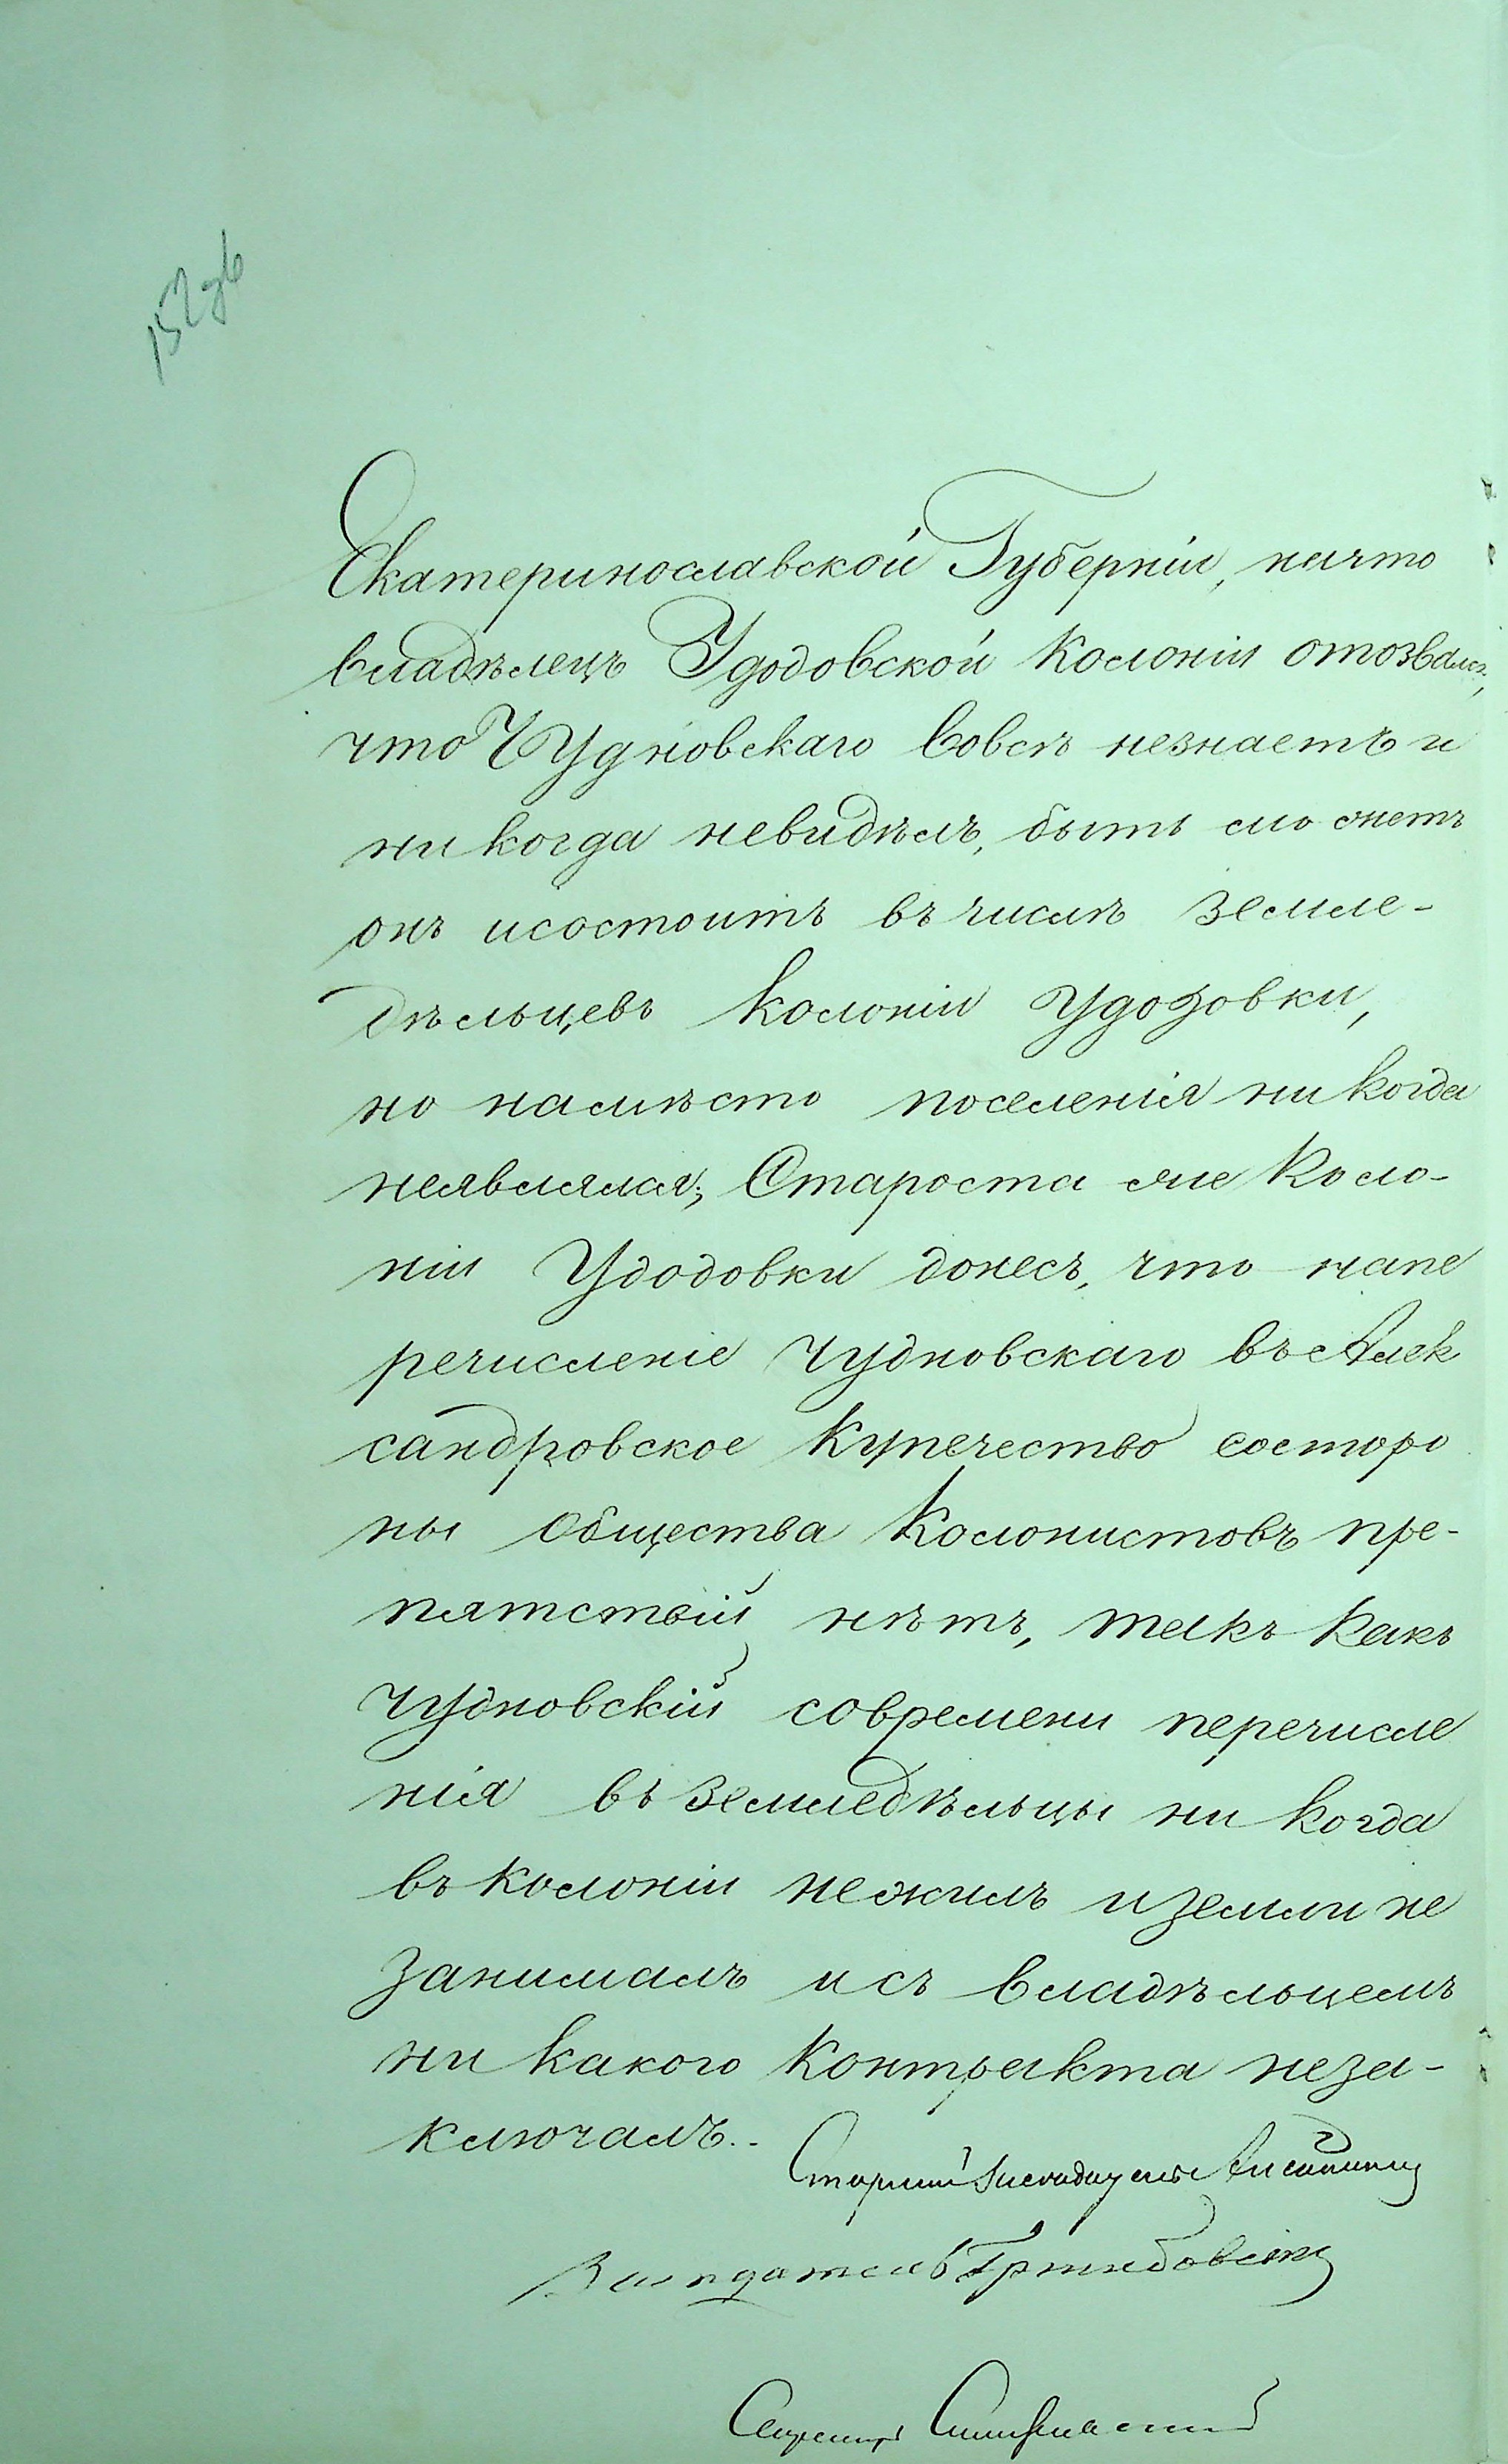 152
Екатеринославской Губерніи, начто
владѣлецъ Удодовской колоніи отозвался,
что Чудновскаго вовсѣ незнаетъ и
ни когда невидѣлъ, быть мо жетъ
онъ исостоитъ въ числѣ земле-
дѣльцевъ колоніи Удодовки,
но намѣсто поселенія ни когда
неявлялся; Староста же Коло-
ніи Удодовки донесъ, что напе
речисленіе Чудновскаго въ Алек
сандровское купечество состоро
ны общества Колонистовъ пре-
пятствій нѣтъ, такъ какъ
Чудновскій современи перечисле
нія въ земледѣльцы ни когда
въ колоніи нежилъ и земли не
занималъ и съ владѣльцемъ
ни какого контракта неза-
ключалъ..
Старшій
Засѣдатель
Секретарь